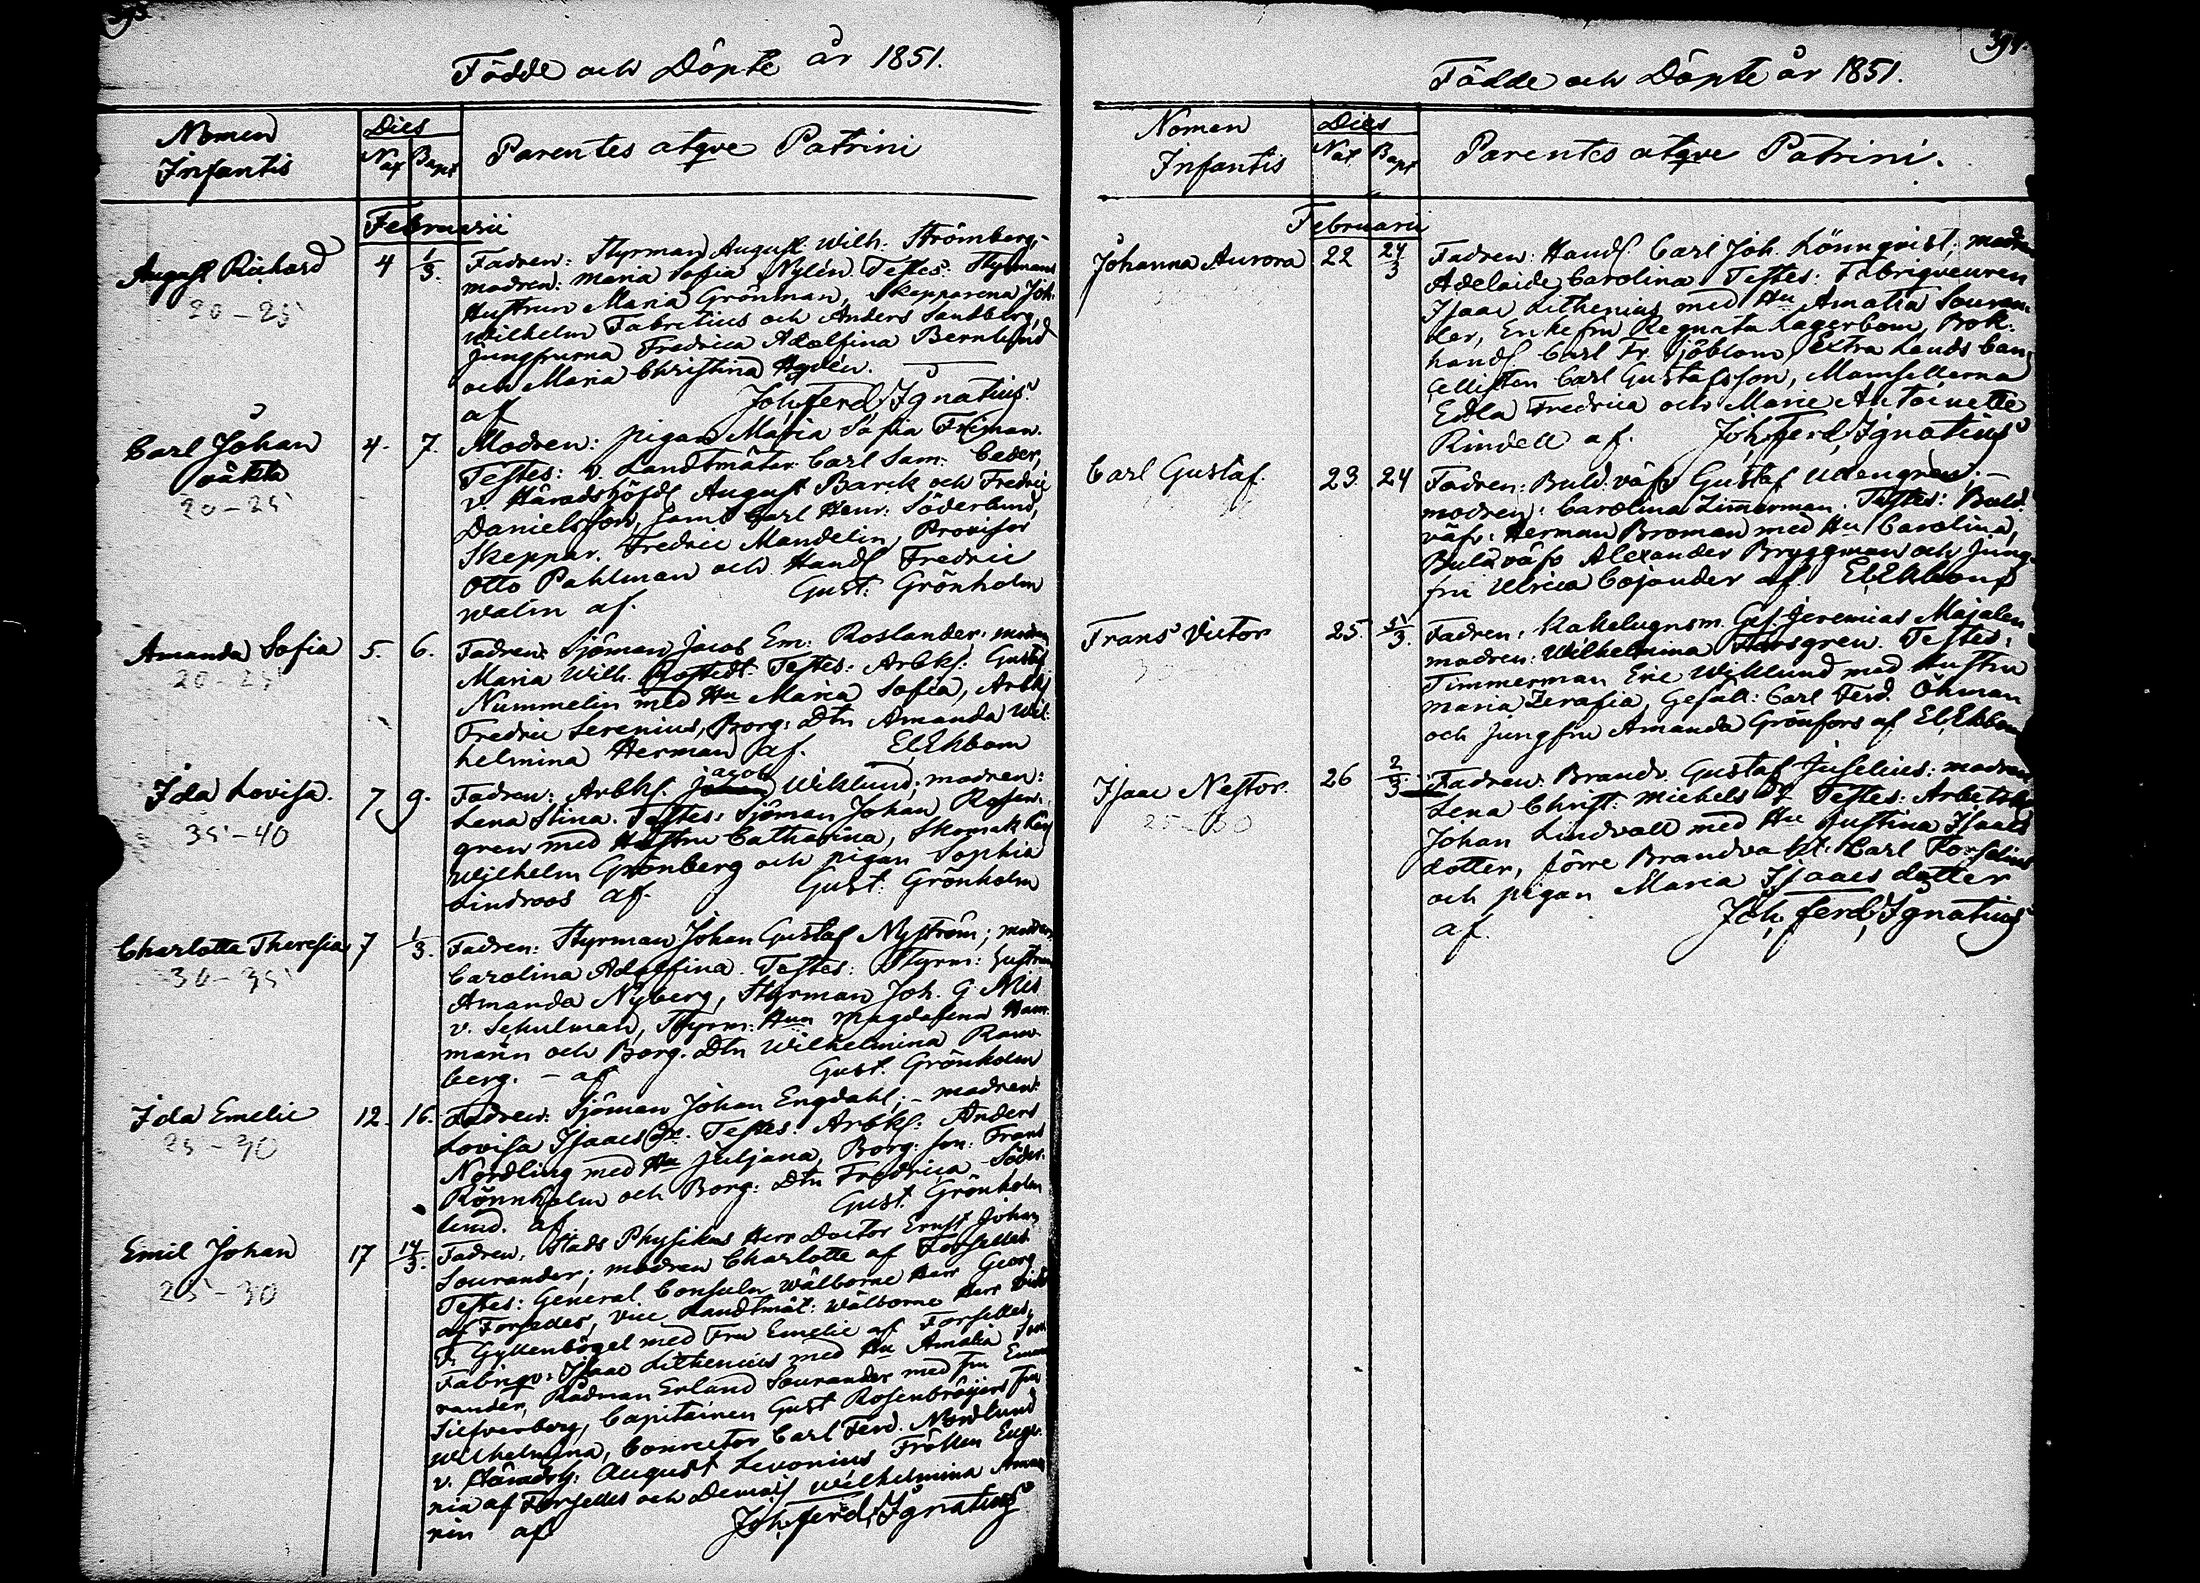 393.
Födde och Döpte år 1851.
Nomen Infantis
Dies
Nat Bapt
Parentes atqve Patrini
Februarii
August Richard 4 1/3.
20-25
Fadren: Styrman August Wilh. Strömberg,
modren: Maria Sofia Nylén. Testes: Styrmans
Hustrun Maria Grönman, Skepparena Joh.
Wilhelm Fabritius och Anders Sandberg,
jungfrurna Fredrica Adolfina Bernlund
och Maria Christina Hydén.
af Joh. Ferd. Ignatius
Carl Johan oäkta 4. 7.
20-25
Modren: pigan Maria Sofia Friman.
Testes: v. Landtmäter. Carl Sam. Ceder,
v. Häradshöfd August Barck och Fredric
Danielsson, samt Carl Henr. Söderlund,
Skeppar. Fredric Mandelin, Provisor
Otto Pahlman och Handl Fredric
Walin af. Gust. Grönholm
Amanda Sofia 5. 6.
20-25
Fadren: Sjöman Jacob Em. Roslander, modren
Maria Wilh. Rostedt. Testes: Arbk. Gustaf
Nummelin med Hu Maria Sofia, Arbk
Fredric Serenius, Borg: Dtn Amanda Wil-
helmina Herman af. El. Ekbom
Ida Lovisa. 7 9.
35-40
Fadren: Arbk. Jacob Wiklund; modren:
Lena Stina. Testes: Sjöman Johan Rosen-
gren med Hustru Catharina, Skomak
Wilhelm Grönberg och pigan Sophia
Lindroos af. Gust. Grönholm
Charlotta Theresia 7 1/3.
30-35
Fadren: Styrman Johan Gustaf Nyström; modren
Carolina Adolfina. Testes: Styrm: hustrun
Amanda Nyberg, Styrman Joh. G. Nis
v. Schulman, Styrm: Hun Magdalena Ham-
marin och Borg. Dtn Wilhelmina Ram-
berg. - af Gust. Grönholm
Ida Emelie 12. 16.
25-30
Fadren: Sjöman Johan Engdahl; - modren:
Lovisa Isaacs Dr. Testes: Arbk: Anders
Nordling med Hu Juljana, Borg: son: Frans
Rönnholm och Borg: Dtn Fredrica Söder-
lund. af Gust. Grönholm
Emil Johan 17 14/3.
25-30
Fadren, Stads Physikus Herr Doctor Ernst Johan
Sourander; modren Charlotte af Forselles
Testes: General Consuln Wälborne Herr Georg
af Forselles, vice Landtmät: Wälborne Herr
F. Gyllenbögel med Fru Emelie af Forselles,
Fabriqv: Isaac Lithenius med Hu Amalia Sou-
rander, Rådman Erland Sourander med fru
Silfverberg, Capitainen Gust Rosenbröijers fru
Wilhelmina, Conrector Carl Ferd. Nordlund
v. Häradsh: August Levonius Fröken Euge-
nia af Forselles och Demois Wilhelmina
nin af Joh. Ferd. Ignatius
394.
Födde och Döpte år 1851.
Nomen Infantis
Dies
Nat Bapt
Parentes atqve Patrini.
Februarii
Johanna Aurora 22 24/3
Fadren: Handl Carl Joh. Lönnqvist; modren
Adelaide Carolina Testes: Fabriqveuren
Isaac Lithenius med Hu Amalia Souran-
der, Enkefru Regnata Lagerbom, Bok-
handl Carl Fr. Sjöblom, Extra Lands Can-
cellisten Carl Gustafsson, Mamsellerna
Edla Fredrica och Marie Antoinette
Rindell af. Joh. Ferd. Ignatius
Carl Gustaf. 23 24
Fadren: Buld: väfv Gustaf Udengren. -
modren: Carolina Zimmerman. Testes: Buld:
väfv: Herman Broman med Hu Carolina,
Buldväfv Alexander Bryggman och Jung-
fru Ulrica Cojander af. El. Ekbom
Frans Victor 25. 5/3.
Fadren: Kakelugnsm. Ges. Jeremias Majalen
modren: Wilhelmina Forsgren. Testes:
Timmerman Eric Wiklund med Hustru
Maria Serafia, Gesäll: Carl Ferd. Öhman
och jungfru Amanda Grönfors af El. Ekbom
Isaac Nestor. 26 2/3.
25-30
Fadren: Brandv. Gustaf Juselius: modren
Lena Christ: Michels Dr Testes: Arbetsk
Johan Lindvall med Hu Justina Isaacs
dotter, förre Brandvakt: Carl Forselius
och pigan Maria Isaacs dotter
af. Joh. Ferd. Ignatius